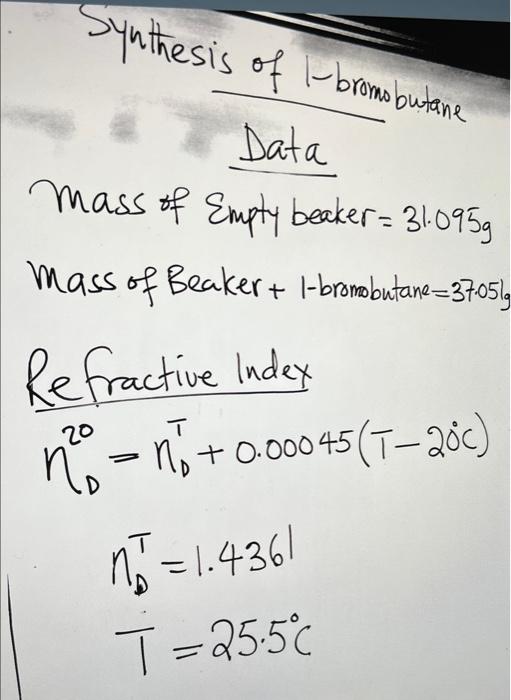 Synthesis of 1-bromobutane
Data
Mass of Empty beaker = 31.095g
Mass of Beaker + 1-bromobutane = 37.051g
Refractive Index
n_D^20 = n_D^T + 0.00045 (T - 20°C)
n_D^T = 1.4361
T = 25.5°C